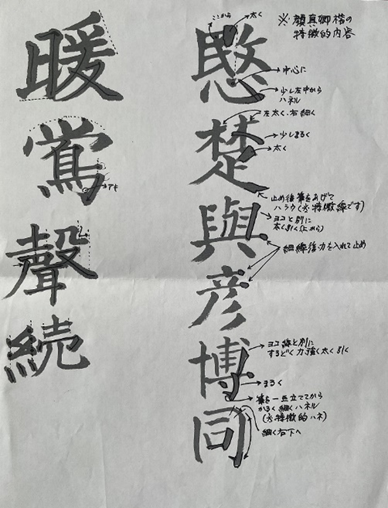 ※ 顔真卿楷の
特徴的内容
愍楚與彦博同
ここから
太く
中心に
少し左中から
ハネル
左太く、右細く
少しまるく
太く
止め後筆をあげて
ハラウ(※特徴線です)
ヨコと別に
太く引く
細線後力を入れて止め
ヨコ線と別に
するどく力強く太く引く
まるく
筆を一旦立ててから
かるく細くハネル
(※特徴的ハネ)
細く右下へ
暖鶯聲続
アキ